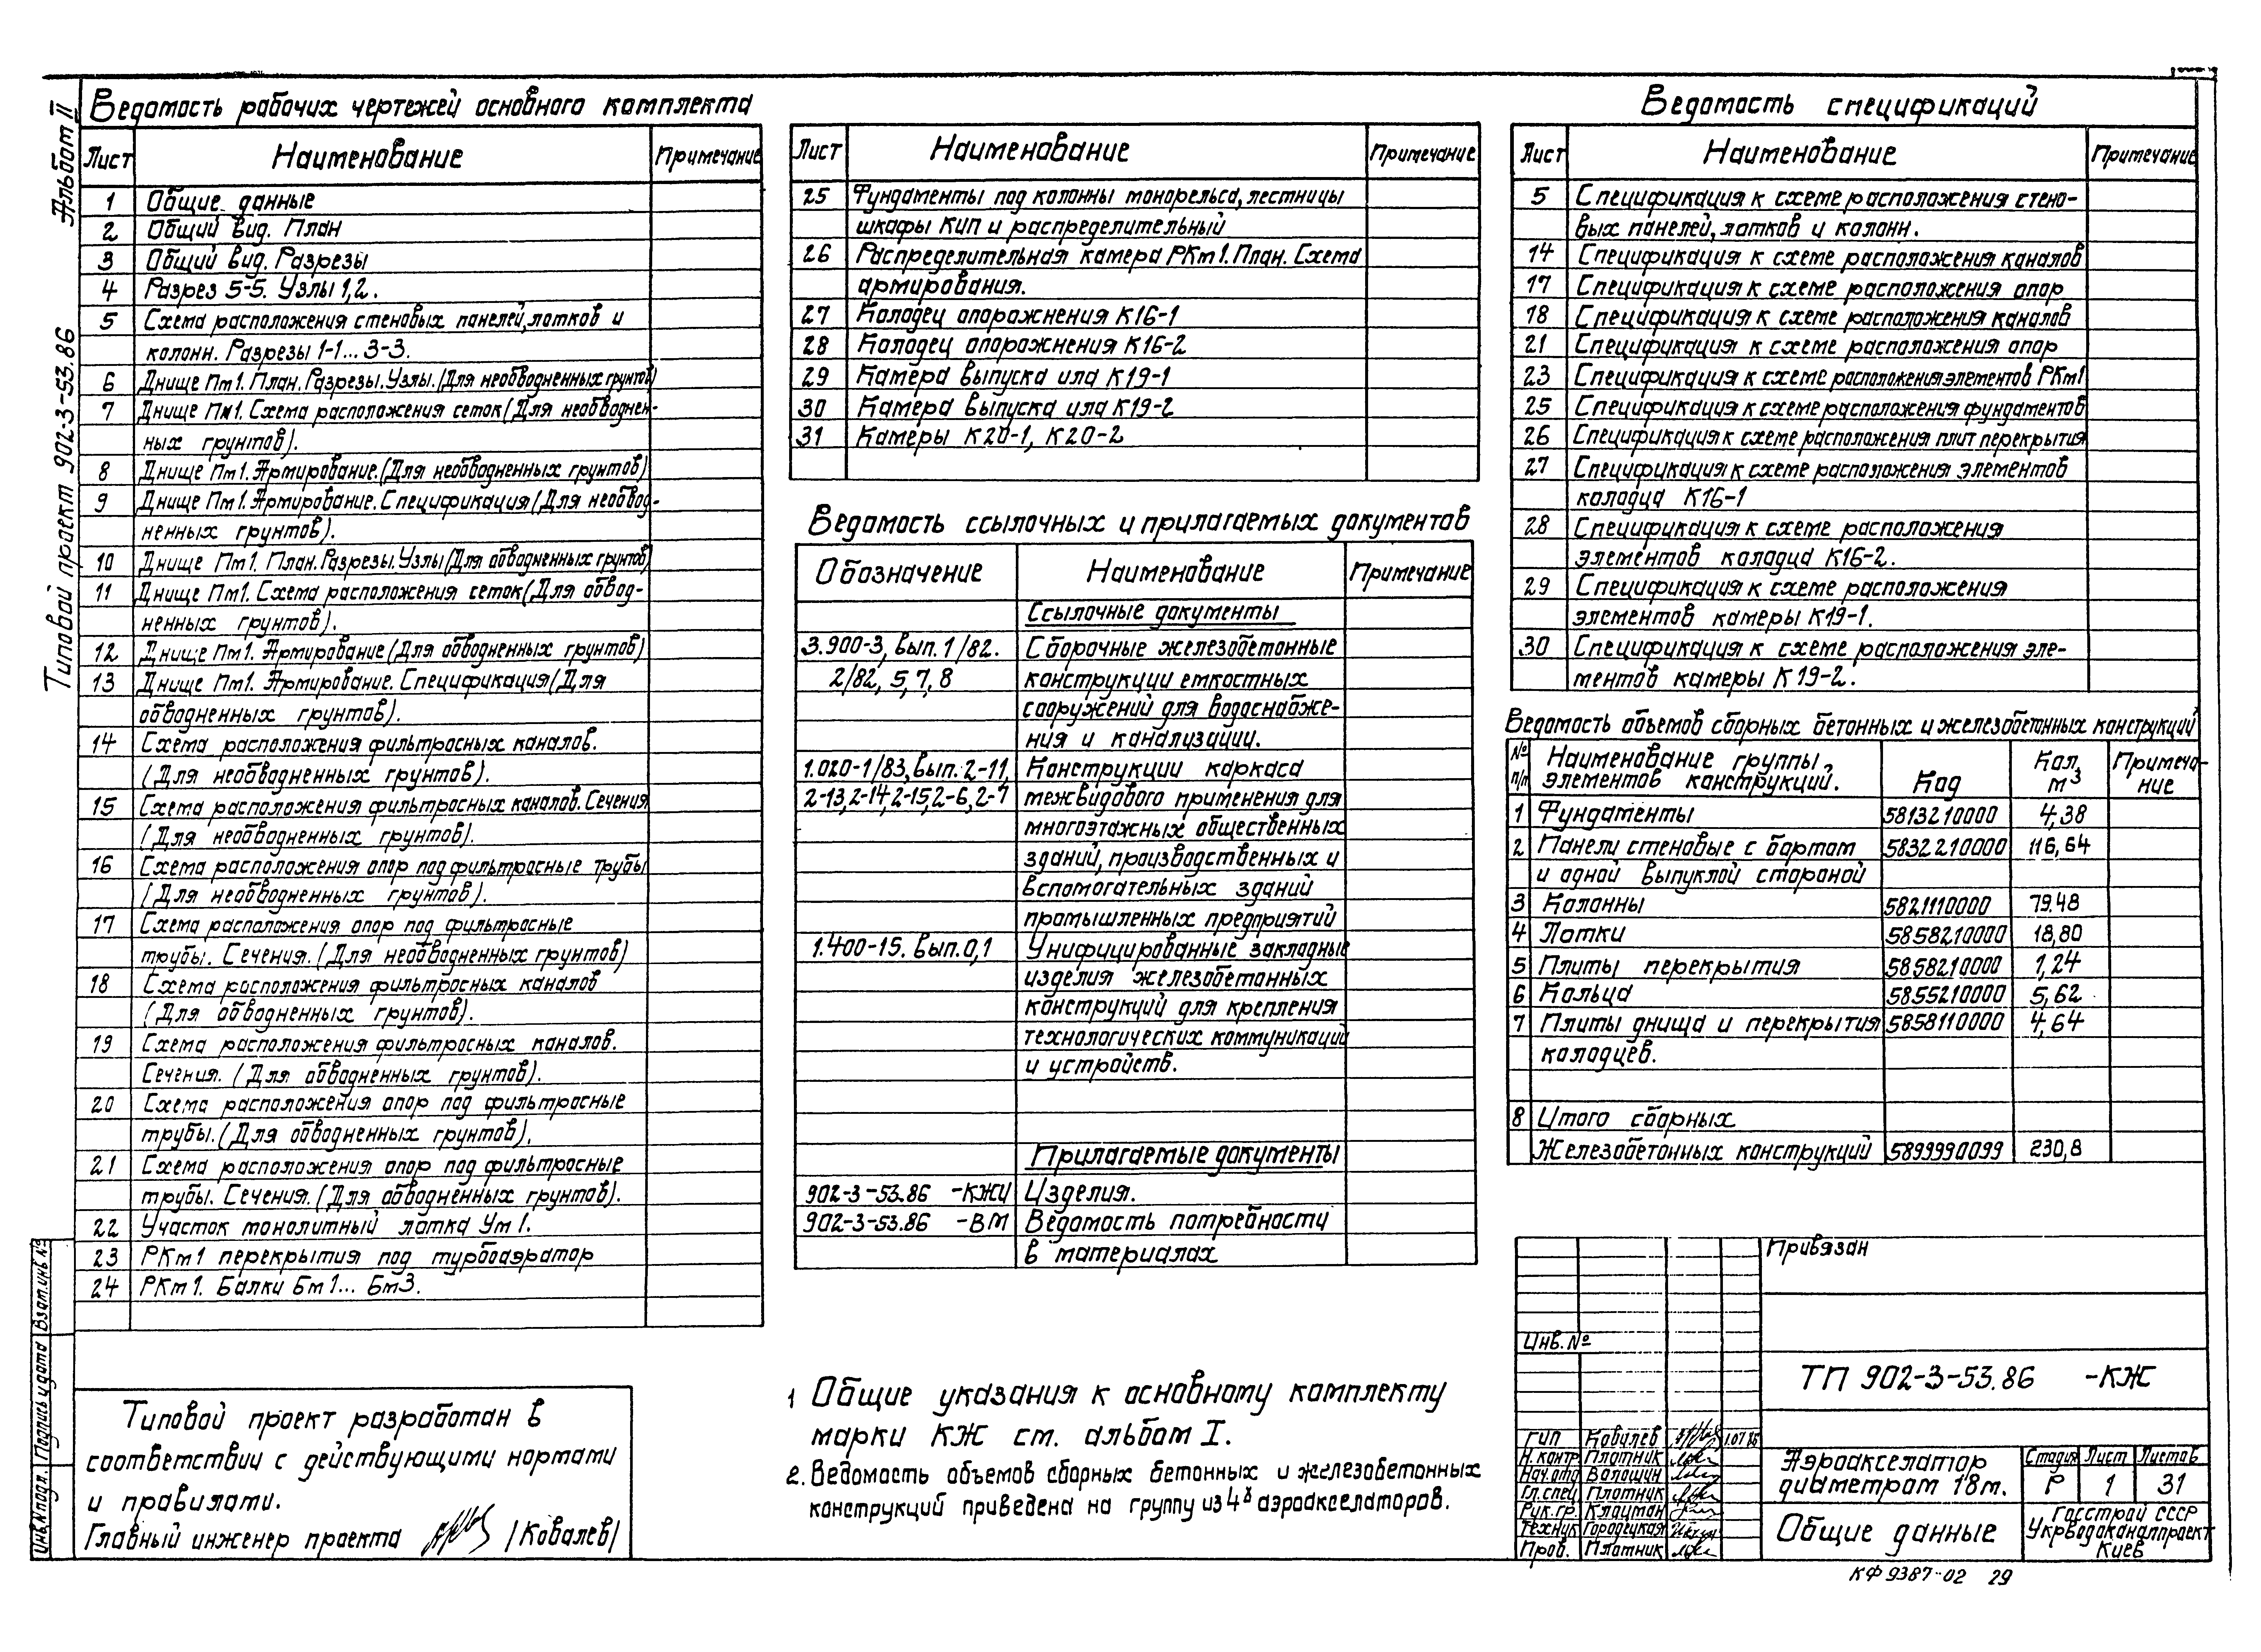 Альбом II
Типовой проект 902-3-53.86
Ведомость рабочих чертежей основного комплекта
Лист Наименование Примечание
1 Общие данные
2 Общий вид. План
3 Общий вид. Разрезы
4 Разрез 5-5. Узлы 1,2.
5 Схема расположения стеновых панелей, лотков и
колонн. Разрезы 1-1... 3-3.
6 Днище Пм1. План. Разрезы. Узлы. (Для необводненных грунтов)
7 Днище Пм1. Схема расположения сеток (Для необводнен-
ных грунтов).
8 Днище Пм1. Армирование. (Для необводненных грунтов)
9 Днище Пм1. Армирование. Спецификация (Для необвод-
ненных грунтов).
10 Днище Пм1. План. Разрезы. Узлы (Для обводненных грунтов)
11 Днище Пм1. Схема расположения сеток (Для обвод-
ненных грунтов).
12 Днище Пм1. Армирование (Для обводненных грунтов)
13 Днище Пм1. Армирование. Спецификация (Для
обводненных грунтов).
14 Схема расположения фильтросных каналов.
(Для необводненных грунтов).
15 Схема расположения фильтросных каналов. Сечения
(Для необводненных грунтов).
16 Схема расположения опор под фильтросные трубы
(Для необводненных грунтов).
17 Схема расположения опор под фильтросные
трубы. Сечения. (Для необводненных грунтов)
18 Схема расположения фильтросных каналов
(Для обводненных грунтов).
19 Схема расположения фильтросных каналов.
Сечения. (Для обводненных грунтов).
20 Схема расположения опор под фильтросные
трубы. (Для обводненных грунтов).
21 Схема расположения опор под фильтросные
трубы. Сечения. (Для обводненных грунтов).
22 Участок монолитный лотка Ум 1.
23 РКм1 перекрытия под турбоаэратор
24 РКм1. Балки Бм1... Бм3.
Типовой проект разработан в
соответствии с действующими нормами
и правилами.
Главный инженер проекта /Ковалев/
Инв.№подл. Подпись и дата Взам.инв.№
Лист Наименование Примечание
25 Фундаменты под колонны монорельса, лестницы
шкафы КИП и распределительный
26 Распределительная камера РКм1. План. Схема
армирования.
27 Колодец опоражнения К16-1
28 Колодец опоражнения К16-2
29 Камера выпуска ила К19-1
30 Камера выпуска ила К19-2
31 Камеры К20-1, К20-2
Ведомость ссылочных и прилагаемых документов
Обозначение Наименование Примечание
Ссылочные документы
3.900-3, вып.1/82. Сборочные железобетонные
2/82, 5,7,8 конструкции емкостных
сооружений для водоснабже-
ния и канализации.
1.020-1/83, вып. 2-11, Конструкции каркаса
2-13,2-14,2-15,2-6,2-7 межвидового применения для
многоэтажных общественных
зданий, производственных и
вспомогательных зданий
промышленных предприятий
1.400-15. вып.0,1 Унифицированные закладные
изделия железобетонных
конструкций для крепления
технологических коммуникаций
и устройств.
Прилагаемые документы
902-3-53.86 -КЖИ Изделия.
902-3-53.86 -ВМ Ведомость потребности
в материалах
1 Общие указания к основному комплекту
марки КЖ см. альбом I.
2. Ведомость объемов сборных бетонных и железобетонных
конструкций приведена на группу из 4х аэроакселаторов.
Ведомость спецификаций
Лист Наименование Примечание
5 Спецификация к схеме расположения стено-
вых панелей, лотков и колонн.
14 Спецификация к схеме расположения каналов
17 Спецификация к схеме расположения опор
18 Спецификация к схеме расположения каналов
21 Спецификация к схеме расположения опор
23 Спецификация к схеме расположения элементов РКм1
25 Спецификация к схеме расположения фундаментов
26 Спецификация к схеме расположения плит перекрытия
27 Спецификация к схеме расположения элементов
колодца К16-1
28 Спецификация к схеме расположения
элементов колодца К16-2.
29 Спецификация к схеме расположения
элементов камеры К19-1.
30 Спецификация к схеме расположения эле-
ментов камеры К19-2.
Ведомость объемов сборных бетонных и железобетонных конструкций
№ п/п Наименование группы элементов конструкций. Код Кол, м3 Примеча-ние
1 Фундаменты 5813210000 4,38
2 Панели стеновые с бортом 5832210000 116,64
и одной выпуклой стороной
3 Колонны 5821110000 79.48
4 Лотки 5858210000 18,80
5 Плиты перекрытия 5858210000 1,24
6 Кольца 5855210000 5,62
7 Плиты днища и перекрытия 5858110000 4,64
колодцев.
8 Итого сборных
Железобетонных конструкций 5899990099 230,8
Привязан
Инв.№
ТП 902-3-53.86 -КЖ
ГИП Ковалев 1.07.86
Н.контр Плотник
Нач.отд Волошин
Гл.спец Плотник
Рук.гр. Клаутман
Техник Городецкая
Пров. Плотник
Аэроакселатор
диаметром 18м.
Стадия Лист Листов
Р 1 31
Общие данные
Госстрой СССР
Укрводоканалпроект
Киев
КФ 9387-02 29